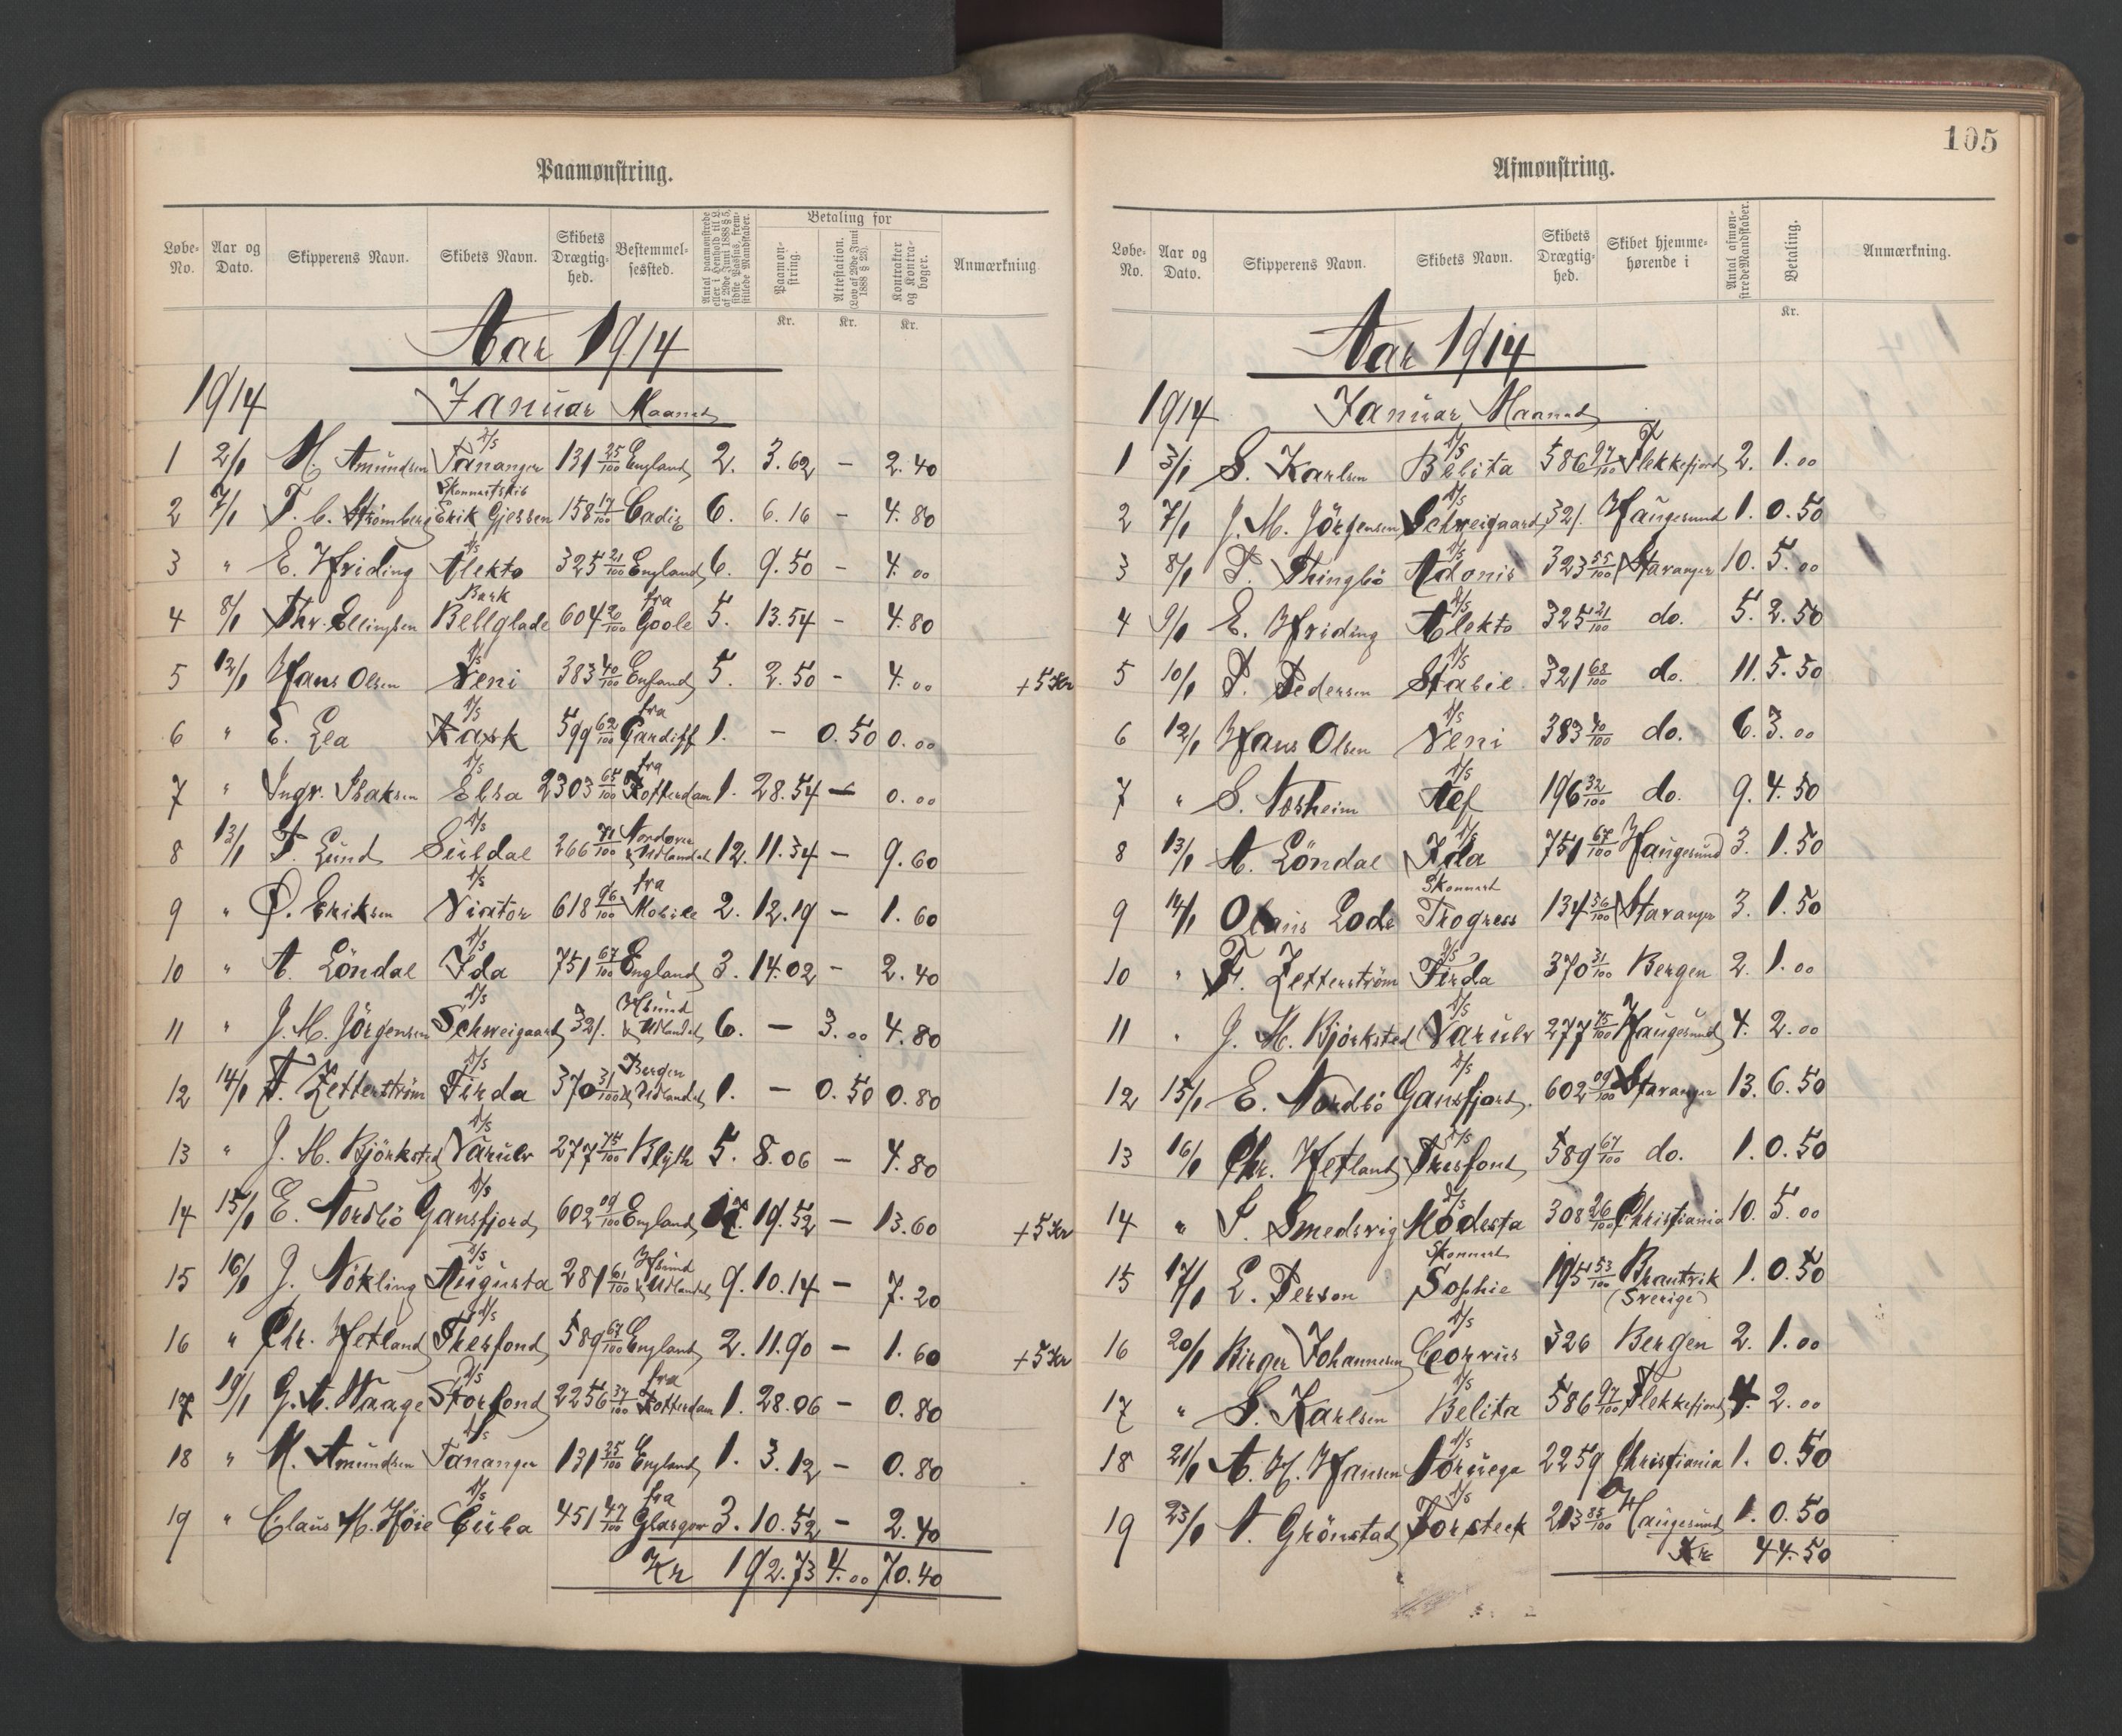 Paamønstring.
Løbe-No. | Aar og Dato. | Skipperens Navn. | Skibets Navn. | Skibets Drægtig-hed. | Bestemmel-sessted. | Antal paamønstrede eller i Henhold til L. af 29de Juni 1888 § 5, sidste Passus, frem-stillede Mandskaber. | Betaling for | Anmærkning
Paamøn-string. | Attestation. (Lov af 29de Juni 1888 § 23). | Kontrakter og Kontra-bøger.
Kr. | Kr. | Kr.
Aar 1914
1914 Januar Maaned
1 | 2/1 | M. Amundsen | D/S Tananger | 131 25/100 | England | 2. | 3.62 | – | 2.40
2 | 7/1 | T. C. Strömberg | Skonnertskib Erik Gjessen | 158 17/100 | Cadiz | 6. | 6.16 | – | 4.80
3 | " | E. Hriding | D/S Alekto | 325 21/100 | England | 6. | 9.50 | – | 4.00
4 | 8/1 | Thr. Ellingsen | Bark Bellglade | 604 20/100 | fra Goole | 5. | 13.54 | – | 4.80
5 | 12/1 | Hans Olsen | D/S Veni | 383 40/100 | England | 5. | 2.50 | – | 4.00 | + 5 Kr
6 | " | E. Lea | D/S Kark | 599 62/100 | fra Cardiff | 1. | – | 0.50 | 0.00
7 | " | Ingv. Isaksen | D/S Elsa | 2303 65/100 | fra Rotterdam | 1. | 28.54 | – | 0.00
8 | 13/1 | F. Lund | D/S Suldal | 266 71/100 | Nordover & Udlandet | 12. | 11.34 | – | 9.60
9 | " | O. Eriksen | D/S Viator | 618 96/100 | fra Mobile | 2. | 12.19 | – | 1.60
10 | " | A. Löndal | D/S Ida | 751 67/100 | England | 3. | 14.02 | – | 2.40
11 | " | J. M. Jörgensen | D/S Schweigaard | 321. | Hsund & Udlandet | 6. | – | 3.00 | 4.80
12 | 14/1 | F. Zetterström | D/S Firda | 370 31/100 | Bergen & Udlandet | 1. | – | 0.50 | 0.80
13 | " | J. M. Björksted | D/S Varulv | 277 75/100 | Blyth | 5. | 8.06 | – | 4.80
14 | 15/1 | E. Nordbö | D/S Gansfjord | 602 09/100 | England | 17. | 19.52 | – | 13.60 | + 5 Kr
15 | 16/1 | J. Nökling | D/S Augusta | 281 61/100 | Hsund & Udlandet | 9. | 10.14 | – | 7.20
16 | " | Chr. Hetland | D/S Skersfond | 589 67/100 | England | 2. | 11.90 | – | 1.60 | + 5 Kr
17 | 19/1 | G. A. Waage | D/S Storfond | 2256 37/100 | fra Rotterdam | 1. | 28.06 | – | 0.80
18 | " | M. Amundsen | D/S Tananger | 131 25/100 | England | 1. | 3.12 | – | 0.80
19 | " | Claus M. Höie | D/S Cuba | 451 47/100 | fra Glasgow | 3. | 10.52 | – | 2.40
Kr 192.73 4.00 70.40
105
Afmønstring.
Løbe-No. | Aar og Dato. | Skipperens Navn. | Skibets Navn. | Skibets Drægtig-hed. | Skibet hjemme-hørende i | Antal afmøn-strede Mandskaber. | Betaling. | Anmærkning.
Kr.
Aar 1914
1914 Januar Maaned
1 | 3/1 | S. Karlsen | D/S Belita | 586 97/100 | Flekkefjord | 2. | 1.00
2 | 7/1 | J. M. Jörgensen | D/S Schweigaard | 321. | Haugesund | 1. | 0.50
3 | 8/1 | T. Thingbö | D/S Adonis | 323 55/100 | Stavanger | 10. | 5.00
4 | 9/1 | E. Hriding | D/S Alekto | 325 21/100 | do. | 5. | 2.50
5 | 10/1 | P. Pedersen | D/S Stabil | 321 68/100 | do. | 11. | 5.50
6 | 12/1 | Hans Olsen | D/S Veni | 383 40/100 | do. | 6. | 3.00
7 | " | S. Norheim | D/S Alf | 196 32/100 | do. | 9. | 4.50
8 | 13/1 | A. Löndal | D/S Ida | 751 67/100 | Haugesund | 3. | 1.50
9 | 14/1 | Olaus Lode | Skonnert Progress | 134 56/100 | Stavanger | 3. | 1.50
10 | " | F. Zetterström | D/S Firda | 370 31/100 | Bergen | 2. | 1.00
11 | " | J. M. Björksted | D/S Varulv | 277 75/100 | Haugesund | 4. | 2.00
12 | 15/1 | E. Nordbö | D/S Gansfjord. | 602 09/100 | Stavanger | 13. | 6.50
13 | 16/1 | Chr. Hetland | D/S Skersfond | 589 67/100 | do. | 1. | 0.50
14 | " | S. Smedsvig | D/S Modesta | 308 26/100 | Christiania | 10. | 5.00
15 | 17/1 | L. Person | Skonnert Sophie | 195 53/100 | Brantvik (Sverige) | 1. | 0.50
16 | 20/1 | Birger Johannesen | D/S Corvus | 326 | Bergen | 2. | 1.00
17 | " | S. Karlsen | D/S Belita | 586 97/100 | Flekkefjord | 4. | 2.00
18 | 21/1 | A. H. Hansen | D/S Noruega | 2259 | Christiania | 1. | 0.50
19 | 23/1 | A. Grönstad | D/S Forsteck | 213 85/100 | Haugesund | 1. | 0.50
Kr 44.50